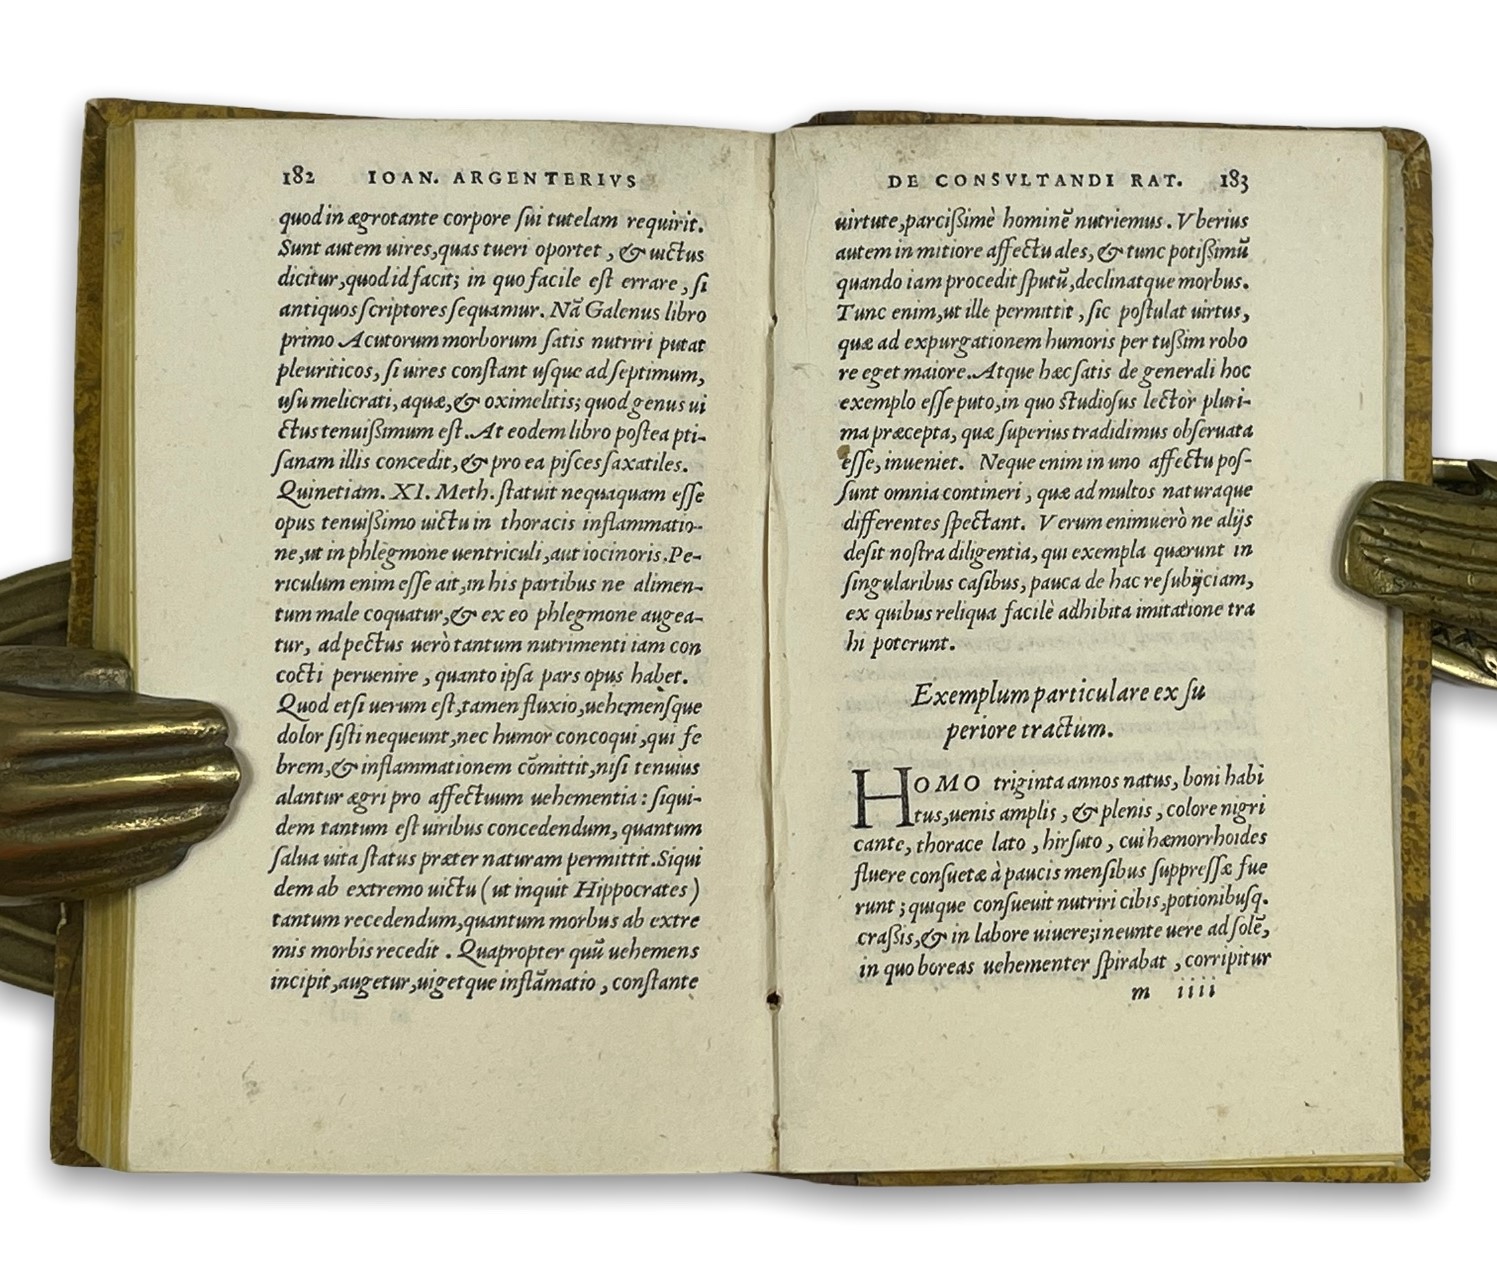 182 IOAN. ARGENTERIVS
quod in ægrotante corpore ſui tutelam requirit.
Sunt autem uires, quas tueri oportet, & uictus
dicitur, quod id facit; in quo facile eſt errare, ſi
antiquos ſcriptores ſequamur. Nā Galenus libro
primo Acutorum morborum ſatis nutriri putat
pleuriticos, ſi uires conſtant uſque ad ſeptimum,
uſu melicrati, aquæ, & oximelitis; quod genus ui
ctus tenuißimum eſt. At eodem libro poſtea pti-
ſanam illis concedit, & pro ea piſces ſaxatiles.
Quinetiam. XI. Meth. ſtatuit nequaquam eſſe
opus tenuißimo uictu in thoracis inflammatio-
ne, ut in phlegmone uentriculi, aut iocinoris. Pe-
riculum enim eſſe ait, in his partibus ne alimen-
tum male coquatur, & ex eo phlegmone augea-
tur, ad pectus uerò tantum nutrimenti iam con
cocti peruenire, quanto ipſa pars opus habet.
Quod etſi uerum eſt, tamen fluxio, uehemenſque
dolor ſiſti nequeunt, nec humor concoqui, qui fe
brem, & inflammationem cōmittit, niſi tenuius
alantur ægri pro affectuum uehementia: ſiqui-
dem tantum eſt uiribus concedendum, quantum
ſalua uita ſtatus præter naturam permittit. Siqui
dem ab extremo uictu (ut inquit Hippocrates)
tantum recedendum, quantum morbus ab extre
mis morbis recedit. Quapropter quū uehemens
incipit, augetur, uigetque inflāmatio, conſtante
DE CONSVLTANDI RAT. 183
uirtute, parcißimè hominē nutriemus. Vberius
autem in mitiore affectu ales, & tunc potißimū
quando iam procedit ſputū, declinatque morbus.
Tunc enim, ut ille permittit, ſic poſtulat uirtus,
quæ ad expurgationem humoris per tußim robo
re eget maiore. Atque hæc ſatis de generali hoc
exemplo eſſe puto, in quo ſtudioſus lector pluri-
ma præcepta, quæ ſuperius tradidimus obſeruata
eſſe, inueniet. Neque enim in uno affectu poſ-
ſunt omnia contineri, quæ ad multos naturaque
differentes ſpectant. Verum enimuerò ne alijs
deſit noſtra diligentia, qui exempla quærunt in
ſingularibus caſibus, pauca de hac re ſubijciam,
ex quibus reliqua facilè adhibita imitatione tra
hi poterunt.
Exemplum particulare ex ſu
periore tractum.
HOMO triginta annos natus, boni habi
tus, uenis amplis, & plenis, colore nigri
cante, thorace lato, hirſuto, cui hæmorrhoides
fluere conſuetæ à paucis menſibus ſuppreſſæ fue
runt; quique conſueuit nutriri cibis, potionibusq.
craßis, & in labore uiuere; ineunte uere ad ſolē,
in quo boreas uehementer ſpirabat, corripitur
m iiii